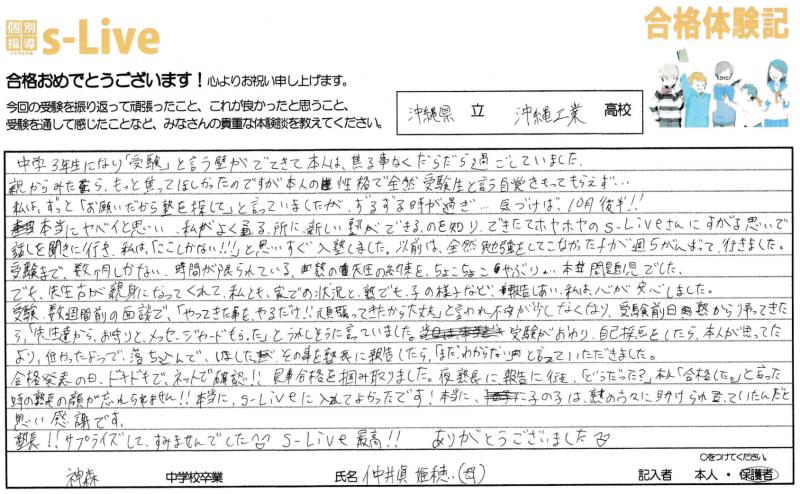 個別指導 s-Live
合格体験記
合格おめでとうございます！心よりお祝い申し上げます。
今回の受験を振り返って頑張ったこと、これが良かったと思うこと、
受験を通して感じたことなど、みなさんの貴重な体験談を教えてください。
沖縄県 立 沖縄工業 高校
中学3年生になり「受験」と言う壁がでてきて本人は、焦る事なくだらだら過ごしていました。
親からみたら、もっと焦ってほしかったのですが本人の性格で全然受験生と言う自覚をもってもらえず…
私は、ずっと「お願いだから塾を探して」と言っていましたが、ずるずる時が過ぎ… 気づけば、10月後半!!
本当にヤバイと思い、私がよく通る所に新しい塾ができるのを知り、できたてホヤホヤのs-Liveさんにすがる思いで
話しを聞きに行き、私は、「ここしかない!!」と思いすぐ入塾しました。以前は、全然勉強をしてこなかった子が週5がんばって、行きました。
受験まで、数ヶ月しかない、時間が限られている。塾の先生の約束を、ちょこちょこやぶり… 本当問題児でした。
でも、先生方が親身になってくれて、私とも、家での状況と、塾でも、子の様子など、報告しあい、私は、心が安心しました。
受験、数週間前の面談で、「やってきた事を、やるだけ!!頑張ってきたから大丈夫」と言われ不安が少しなくなり、受験前日塾から帰ってきた
ら、「先生達から、お守りと、メッセージカードもらった」とうれしそうに言っていました。受験がおわり、自己採点をしたら、本人が思ってた
より、低かったようで、落ち込んで、いました。その事を塾長に報告したら、「まだ、わからない」と言っていただきました。
合格発表の日、ドキドキで、ネットで確認!! 見事合格を掴み取りました。夜塾長に、報告に行き、「どうだった?」本人「合格した。」と言った
時の塾長の顔が忘れられません!!本当に、s-Liveに入れてよかったです!本当に、子の子は、塾の方々に助けられていたんだと
思い感謝です。
塾長!!サプライズして、すみませんでした♡ s-Live最高!! ありがとうございました♡
〇をつけてください。
神森 中学校卒業 氏名 仲井眞 姫穂 (母) 記入者 本人・保護者